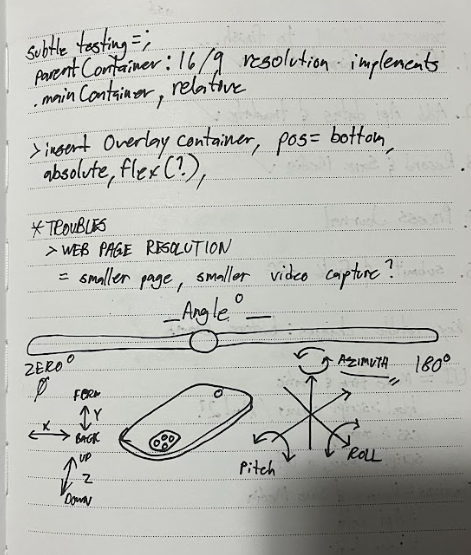 subtle testing=;
parentContainer: 16/9 resolution implements
.mainContainer, relative
>insert Overlay container, pos= bottom,
absolute, flex(?),
*TROUBLES
> WEB PAGE RESOLUTION
= smaller page, smaller video capture?
_Angle°_
ZERO° 180°
AZIMUTH
X Y
BACK
UP
Z
DOWN
Pitch ROLL